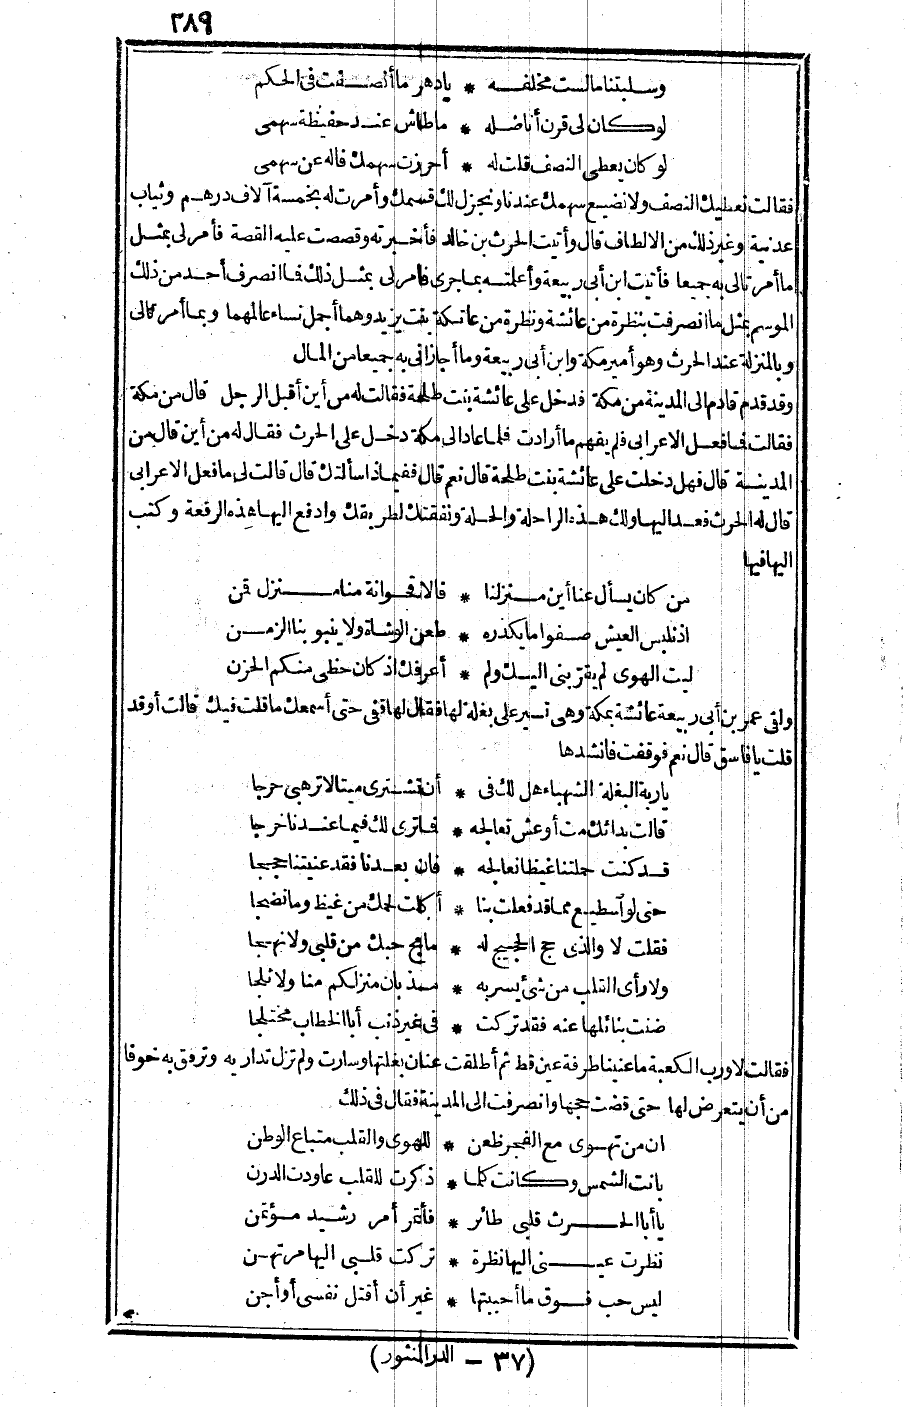 ٢٨٩
وسلبتنا مالست مخلفه * يادهر ما أنصفت فى الحكم
لوكان لى قرن أناضله * ماطاش عند حفيظة سهمى
لو كان يعطى النصف قلت له * أحرزت سهمك فاله عن سهمى
فقالت نعطيك النصف ولا نضيع سهمك عندنا ونجزل لك قسمك وأمرت له بخمسة آلاف درهم وثياب
عدنية وغير ذلك من الالطاف قال وأتيت الحرث بن خالد فأخبرته وقصصت عليه القصة فأمر لى بمثل
ما أمرتالى به جميعا فأتيت ابن أبى ربيعة وأعلمته بماجرى فامر لى بمثل ذلك فما انصرف أحد من ذلك
الموسم بمثل ما انصرفت بنظرة من عائشة ونظرة من عاتكة بنت يزيد وهما أجمل نساء عالمهما وبما أمرتالى
وبالمنزلة عند الحرث وهو أمير مكة وابن أبى ربيعة وما أجازانى به جميعا من المال
وقدقدم قادم الى المدينة من مكة فدخل على عائشة بنت طلحة فقالت له من أين أقبل الرجل قال من مكة
فقالت فما فعل الاعرابى فلم يفهم ما أرادت فلما عاد الى مكة دخل على الحرث فقال له من أين قال من
المدينة قال فهل دخلت على عائشة بنت طلحة قال نعم قال ففيماذا سألتك قال قالت لى ما فعل الاعرابى
قال له الحرث فعد اليها ولك هذه الراحلة والحلة ونفقتك لطريقك وادفع اليها هذه الرقعة وكتب
اليها فيها
من كان يسأل عنا أين منزلنا * فالاقحوانة منا منزل قمن
اذ نلبس العيش صفوا ما يكدره * طعن الوشاة ولا ينبو بنا الزمن
ليت الهوى لم يقربنى اليك ولم * أعرفك اذ كان حظى منكم الحزن
واقى عمر بن أبى ربيعة عائشة بمكة وهى تسير على بغلة لها فقال لها قفى حتى أسمعك ما قلت فيك قالت أوقد
قلت يا فاسق قال نعم فوقفت فانشدها
ياربة البغلة الشهباء هل لك فى * أن تشترى ميتا لا ترهبى حرجا
قالت بدائك مت أوعش تعالجه * فما ترى لك فيما عندنا خرجا
قد كنت حملتنا غيظا نعالجه * فان بعدنا فقد عنيتنا حججا
حتى لو اسطيع مما قد فعلت بنا * أكلت لحمك من غيظ وما نضجا
فقلت لا والذى حج الحجيج له * ما مج حبك من قلبى ولا نهجا
ولا رأى القلب من شئ يسر به * مذ بان منزلكم منا ولا ثلجا
ضنت بنائلها عنه فقد تركت * فى غير ذنب أبا الخطاب مختلجا
فقالت لا ورب الكعبة ما عنيتنا طرفة عين قط ثم أطلقت عنان بغلتها وسارت ولم تزل تداريه وترفق به خوفا
من أن يتعرض لها حتى قضت حجها وانصرفت الى المدينة فقال فى ذلك
ان من تهوى مع الفجر ظعن * للهوى والقلب متباع الوطن
بانت الشمس وكانت كلما * ذكرت للقلب عاودت الددن
يا أبا الحرث قلبى طائر * فأتمر أمر رشيد مؤتمن
نظرت عينى اليها نظرة * تركت قلبى اليها مرتهن
ليس حب فوق ما أحببتها * غير أن أقتل نفسى أو أجن
(٣٧ - الدر المنثور)